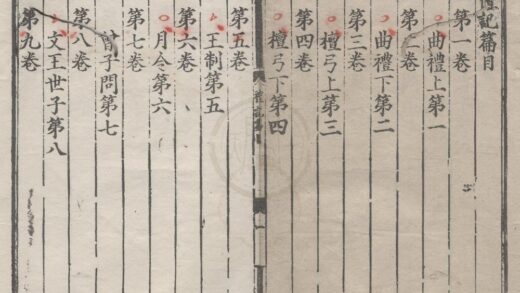 禮記篇目
第一卷
曲禮上第一
第二卷
曲禮下第二
第三卷
檀弓上第三
第四卷
檀弓下第四
第五卷
王制第五
第六卷
月令第六
第七卷
曾子問第七
第八卷
文王世子第八
第九卷